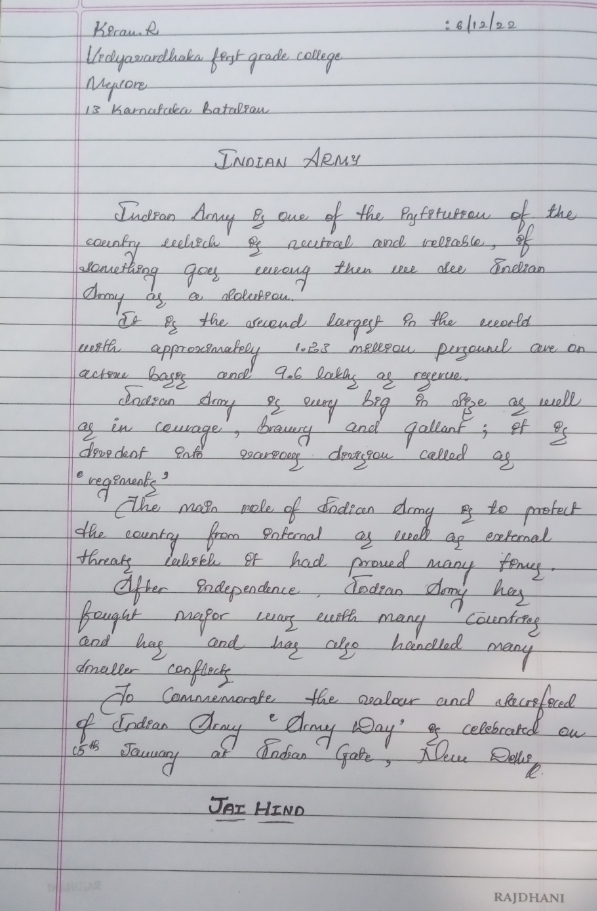 Kiran.R :6/12/22
Vidyavardhaka first grade college
Mysore
13 Karnataka Batalion
INDIAN ARMY
Indian Army is one of the institution of the
country which is neutral and reliable, if
something goes wrong then we see Indian
Army as a solution.
It is the second largest in the world
with approximately 1.23 million personnel are on
active basis and 9.6 lakhs as reserve.
Indian Army is very big in size as well
as in courage, bravery and gallant; it is
devident into various division called as
"regiments"
The main role of Indian Army is to protect
the country from internal as well as external
threats which it had proved many times.
After independence, Indian Army has
fought major wars with many Countries
and has and has also handled many
smaller conflicts
To Commemorate the valour and sacrificed
of Indian Army 'Army Day' is celebrated on
15th January at Indian Gate, New Delhi
JAI HIND
RAJDHANI